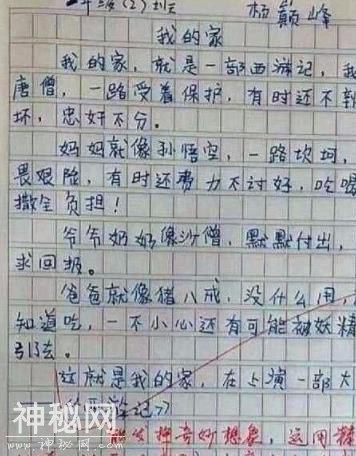 年级(2)班 杨巅峰
我的家
我的家,就是一部西游记,我
唐僧,一路受着保护,有时还不
坏,忠奸不分。
妈妈就像孙悟空,一路坎坷,
畏艰险,有时还费力不讨好,吃喝
撒全负担!
爷爷奶奶像沙僧,默默付出,
求回报。
爸爸就像猪八戒,没什么用,
知道吃,一不小心还有可能被妖精
引去。
这就是我的家,在上演一部大
西游记》
发挥奇妙想象,运用
神秘网